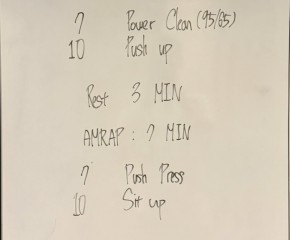 7 Power Clean (95/65)
10 Push up
Rest 3 MIN
AMRAP : 7 MIN
7 Push Press
10 Sit up